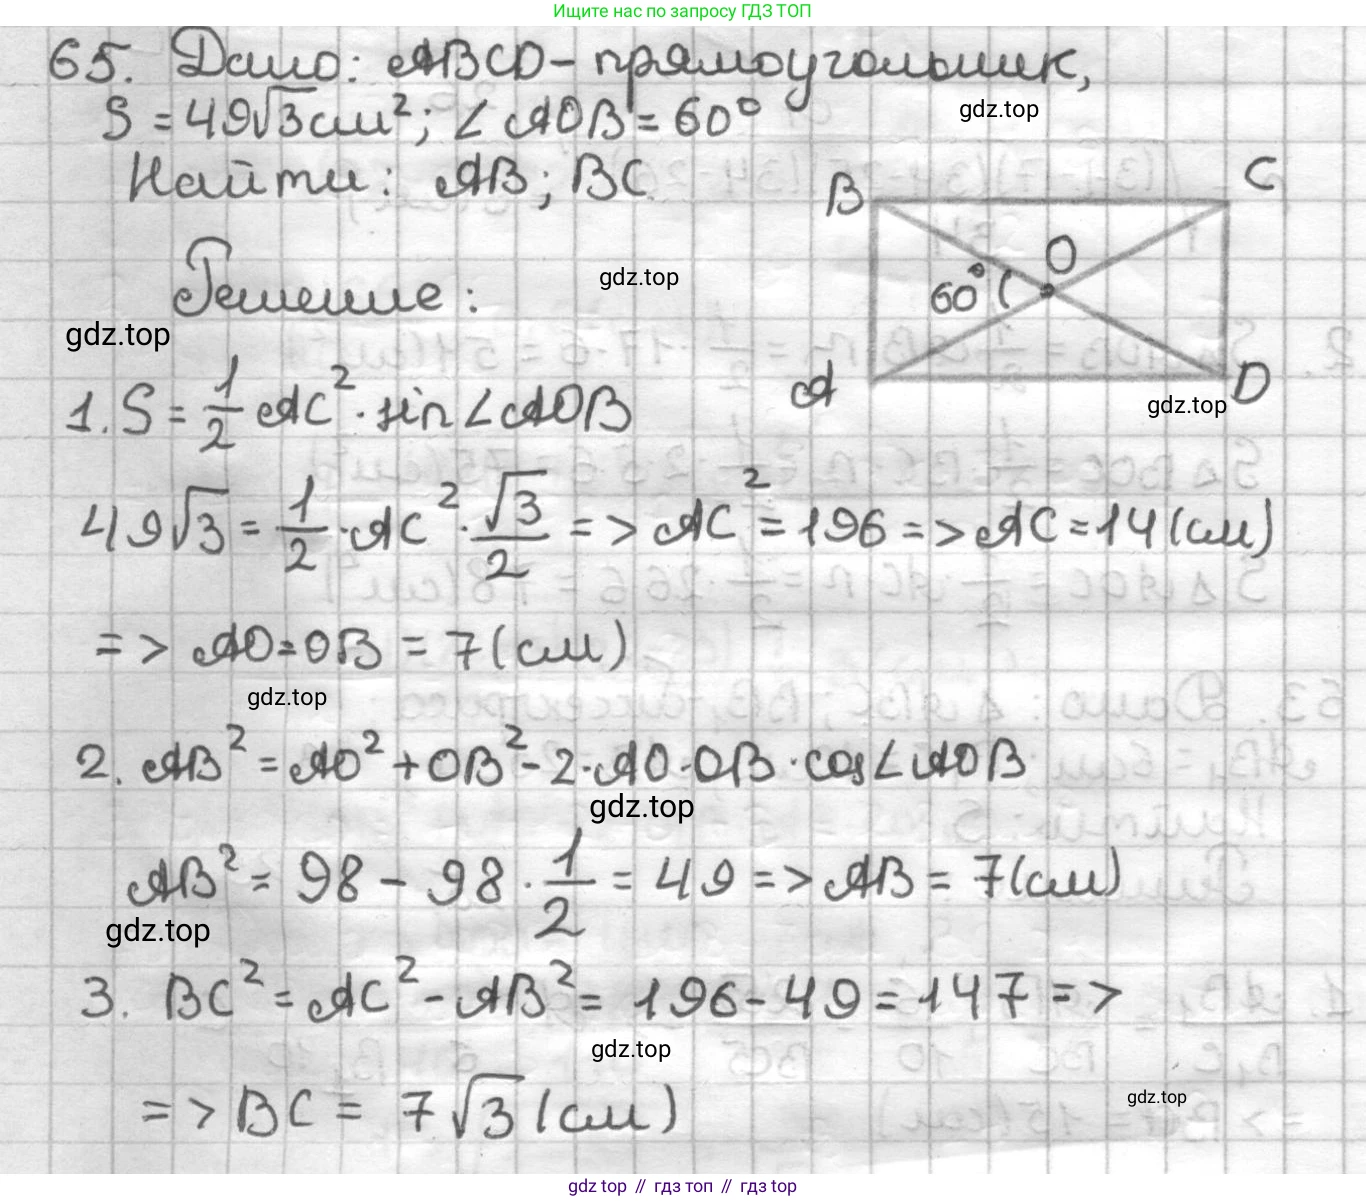 Ищите нас по запросу ГДЗ ТОП
65. Дано: ABCD - прямоугольник,
S = 49√3 см²; ∠AOB = 60°
gdz.top
Найти: AB; BC
B
C
O
60°
A
D
gdz.top
Решение:
gdz.top
gdz.top
1. S = 1/2 AC² · sin∠AOB
49√3 = 1/2 · AC² · √3/2 => AC² = 196 => AC = 14 (см)
=> AO = OB = 7 (см)
gdz.top
2. AB² = AO² + OB² - 2 · AO · OB · cos∠AOB
gdz.top
AB² = 98 - 98 · 1/2 = 49 => AB = 7 (см)
gdz.top
3. BC² = AC² - AB² = 196 - 49 = 147 =>
gdz.top
=> BC = 7√3 (см)
gdz.top
gdz top // гдз топ // gdz top